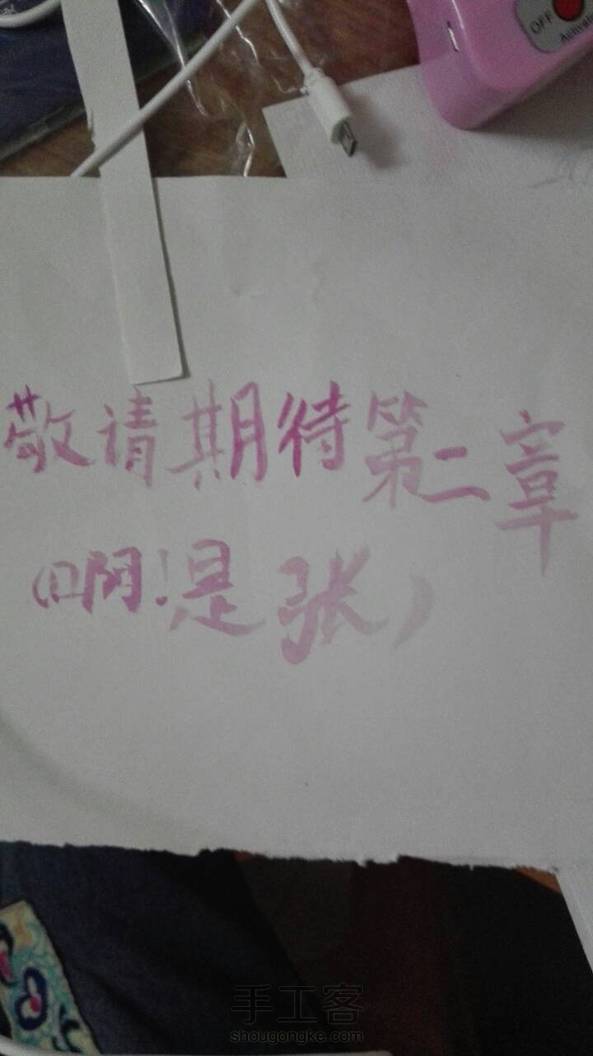 OFF
敬请期待第二章
(啊!是张)
手工客
shougongke.com